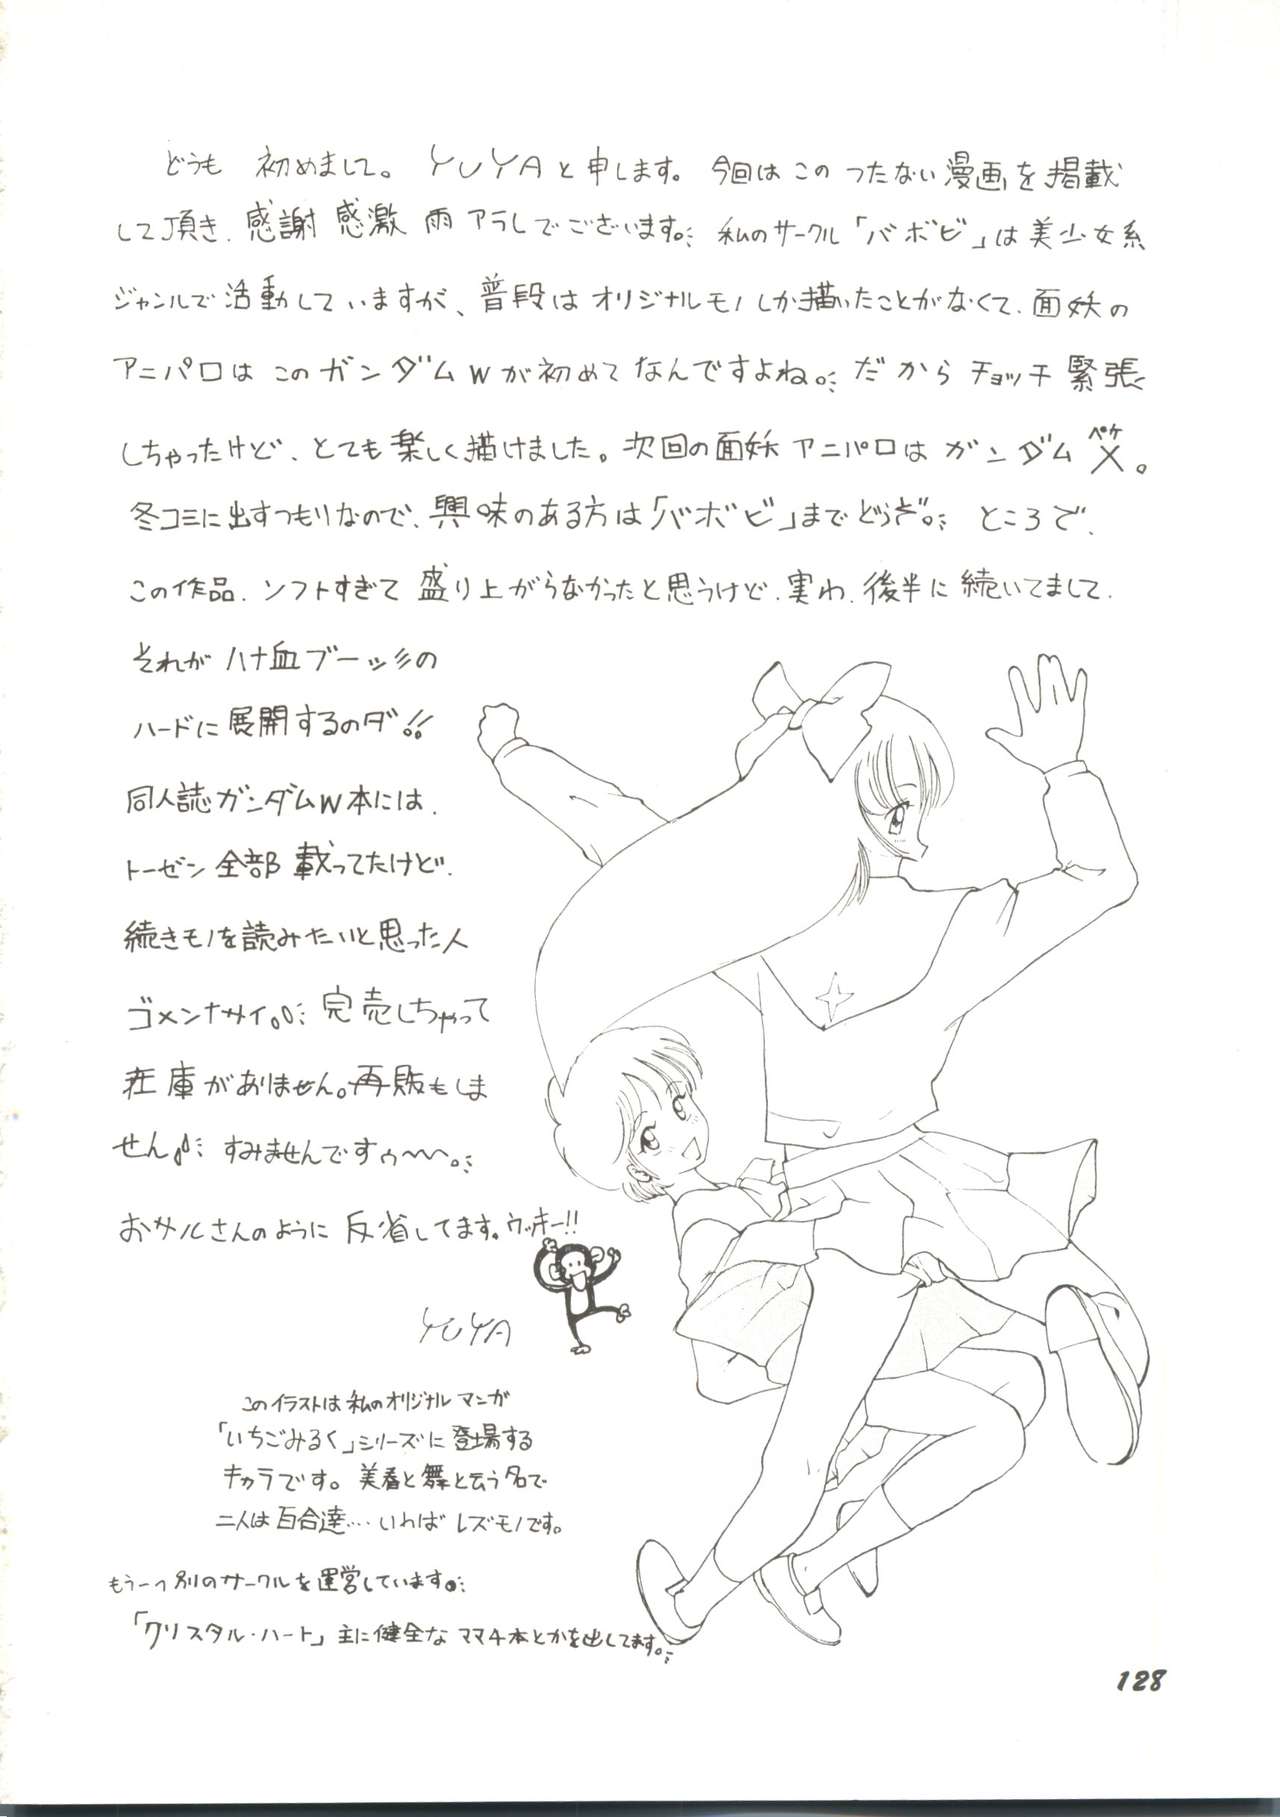 どうも 初めまして。YUYAと申します。今回はこのつたない漫画を掲載
して頂き、感謝 感激 雨アラレでございます。私のサークル「バボビ」は美少女系
ジャンルで活動していますが、普段はオリジナルモノしか描いたことがなくて、面妖の
アニパロはこのガンダムWが初めてなんですよね。だからチョッチ緊張
しちゃったけど、とても楽しく描けました。次回の面妖アニパロはガンダムX。
ペケ
冬コミに出すつもりなので、興味のある方は「バボビ」までどうぞ。ところで、
この作品、ソフトすぎて盛り上がらなかったと思うけど、実わ、後半に続いてまして、
それがハナ血ブーッの
ハードに展開するのダ!!
同人誌ガンダムW本には、
トーゼン全部載ってたけど、
続きモノを読みたいと思った人
ゴメンナサイ。完売しちゃって
在庫がありません。再販もしま
せん。すみませんですぅ〜〜。
おサルさんのように反省してます。ウッキー!!
YUYA
このイラストは私のオリジナルマンガ
「いちごみるく」シリーズに登場する
キャラです。美春と舞と云う名で
二人は百合達‥‥いわばレズモノです。
もう一つ別のサークルを運営しています。
「クリスタル・ハート」主に健全なママ4本とかを出してます。
128